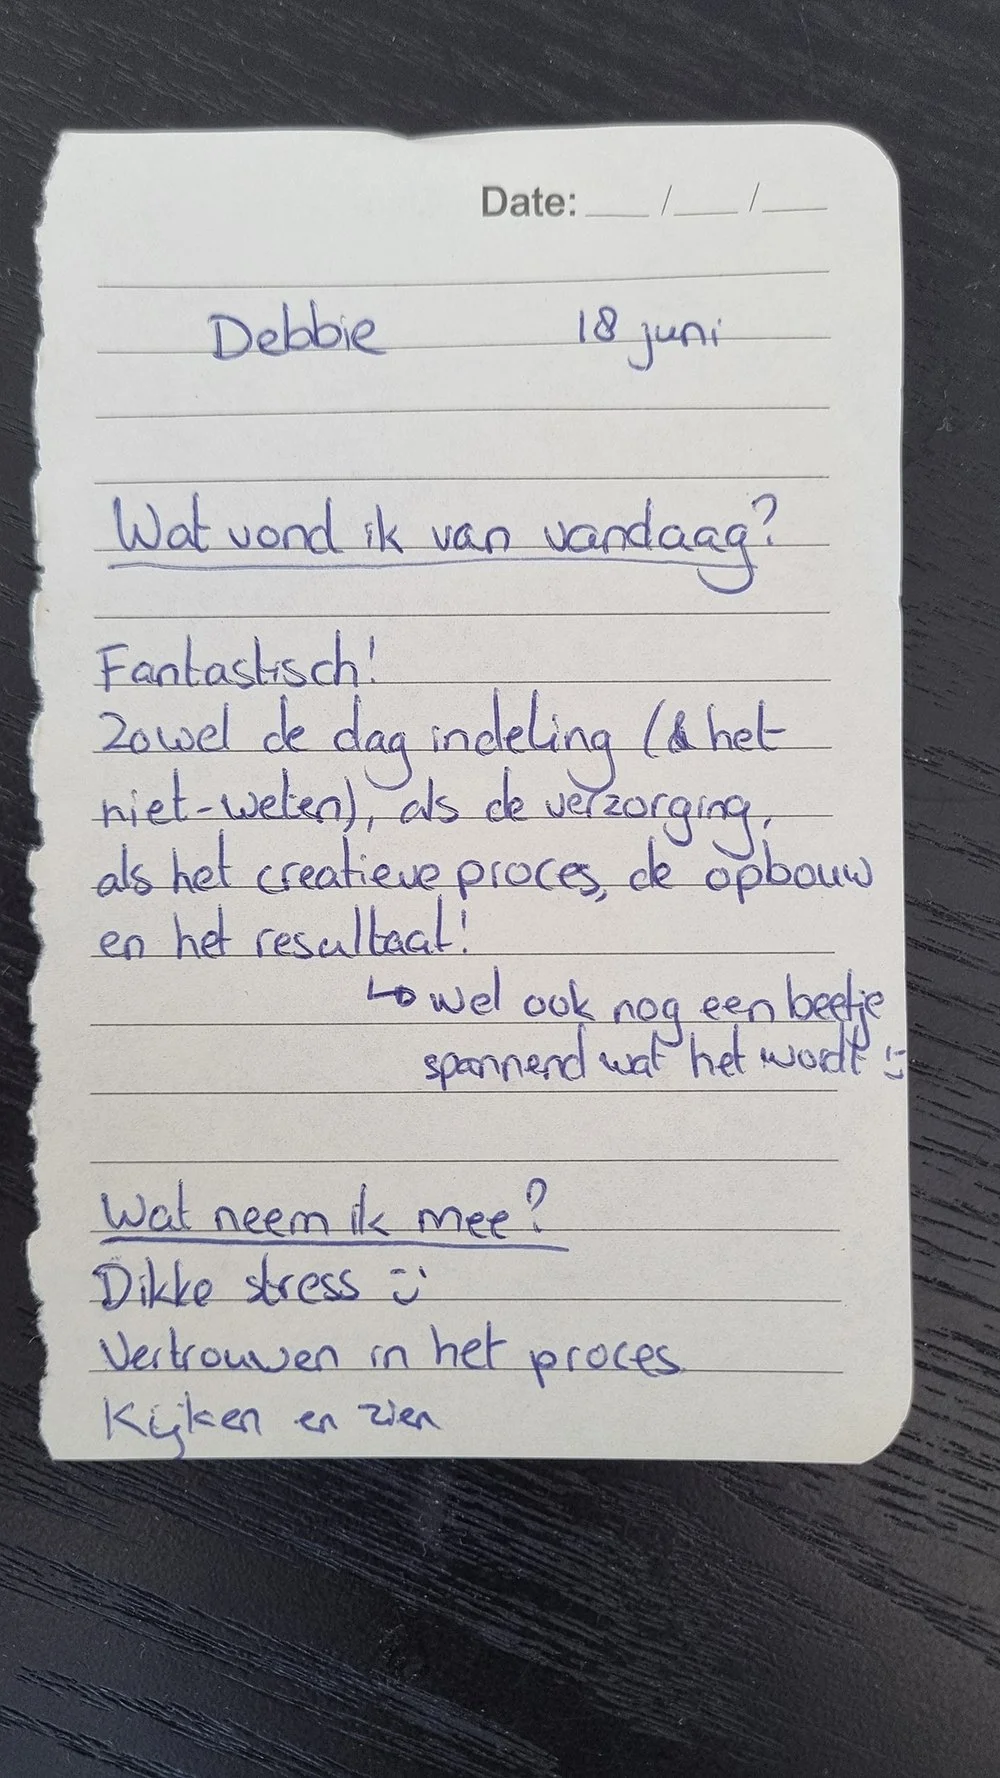 Date: ___ / ___ / ___
Debbie 18 juni
Wat vond ik van vandaag?
Fantastisch!
Zowel de dag indeling (& het
niet-weten), als de verzorging,
als het creatieve proces, de opbouw
en het resultaat!
↳ wel ook nog een beetje
spannend wat het wordt :)
Wat neem ik mee?
Dikke stress :)
Vertrouwen in het proces
Kijken en zien